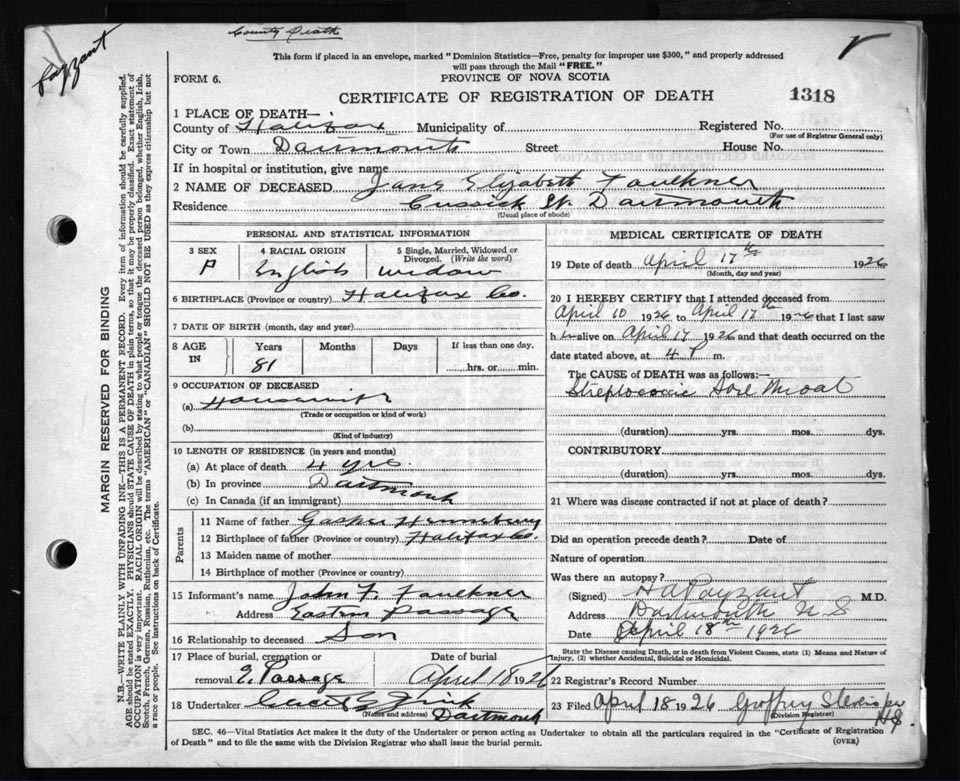 County Death
Payzant
This form if placed in an envelope, marked "Dominion Statistics—Free, penalty for improper use $300," and properly addressed
will pass through the Mail "FREE."
FORM 6.
PROVINCE OF NOVA SCOTIA
CERTIFICATE OF REGISTRATION OF DEATH
1318
1 PLACE OF DEATH—
County of Halifax Municipality of
Registered No.
(For use of Registrar General only)
City or Town Dartmouth Street House No.
If in hospital or institution, give name
2 NAME OF DECEASED Jane Elizabeth Faulkner
Residence Cussick St. Dartmouth
(Usual place of abode)
PERSONAL AND STATISTICAL INFORMATION
3 SEX
4 RACIAL ORIGIN
5 Single, Married, Widowed or
Divorced. (Write the word)
F English widow
6 BIRTHPLACE (Province or country) Halifax Co.
7 DATE OF BIRTH (month, day and year)
8 AGE
IN
Years Months Days
81
If less than one day,
hrs. or min.
9 OCCUPATION OF DECEASED
(a) Housewife
(Trade or occupation or kind of work)
(b)
(Kind of industry)
10 LENGTH OF RESIDENCE (in years and months)
(a) At place of death 4 yrs.
(b) In province Dartmouth
(c) In Canada (if an immigrant)
Parents
11 Name of father Gasper Henneberry
12 Birthplace of father (Province or country) Halifax Co.
13 Maiden name of mother
14 Birthplace of mother (Province or country)
15 Informant's name John F. Faulkner
Address Eastern Passage
16 Relationship to deceased Son
17 Place of burial, cremation or
removal E. Passage
Date of burial
April 18 1926
18 Undertaker
(Name and address) Dartmouth
MEDICAL CERTIFICATE OF DEATH
19 Date of death April 17th 1926
(Month, day and year)
20 I HEREBY CERTIFY that I attended deceased from
April 10 1926 to April 17th 1926 that I last saw
h er alive on April 17 1926 and that death occurred on the
date stated above, at 4 P m.
The CAUSE of DEATH was as follows:—
Streptococcic Sore Throat
(duration) yrs. mos. dys.
CONTRIBUTORY
(duration) yrs. mos. dys.
21 Where was disease contracted if not at place of death?
Did an operation precede death? Date of
Nature of operation
Was there an autopsy?
(Signed) H A Payzant M.D.
Address Dartmouth N S
Date April 18th 1926
State the Disease causing Death, or in death from Violent Causes, state (1) Means and Nature of
Injury, (2) whether Accidental, Suicidal or Homicidal.
22 Registrar's Record Number
23 Filed April 18 1926
(Division Registrar)
SEC. 46—Vital Statistics Act makes it the duty of the Undertaker or person acting as Undertaker to obtain all the particulars required in the "Certificate of Registration
of Death" and to file the same with the Division Registrar who shall issue the burial permit.
(OVER)
MARGIN RESERVED FOR BINDING
N.B.—WRITE PLAINLY WITH UNFADING INK—THIS IS A PERMANENT RECORD. Every item of information should be carefully supplied.
AGE should be stated EXACTLY. PHYSICIANS should STATE CAUSE OF DEATH in plain terms, so that it may be properly classified. Exact statement of
OCCUPATION is very important. RACIAL ORIGIN will be described by stating to what people or tongue the deceased person belonged, whether English, Irish,
Scotch, French, German, Russian, Ruthenian, etc. The terms "AMERICAN" or "CANADIAN" SHOULD NOT BE USED as they express citizenship but not
a race or people. See instructions on back of Certificate.